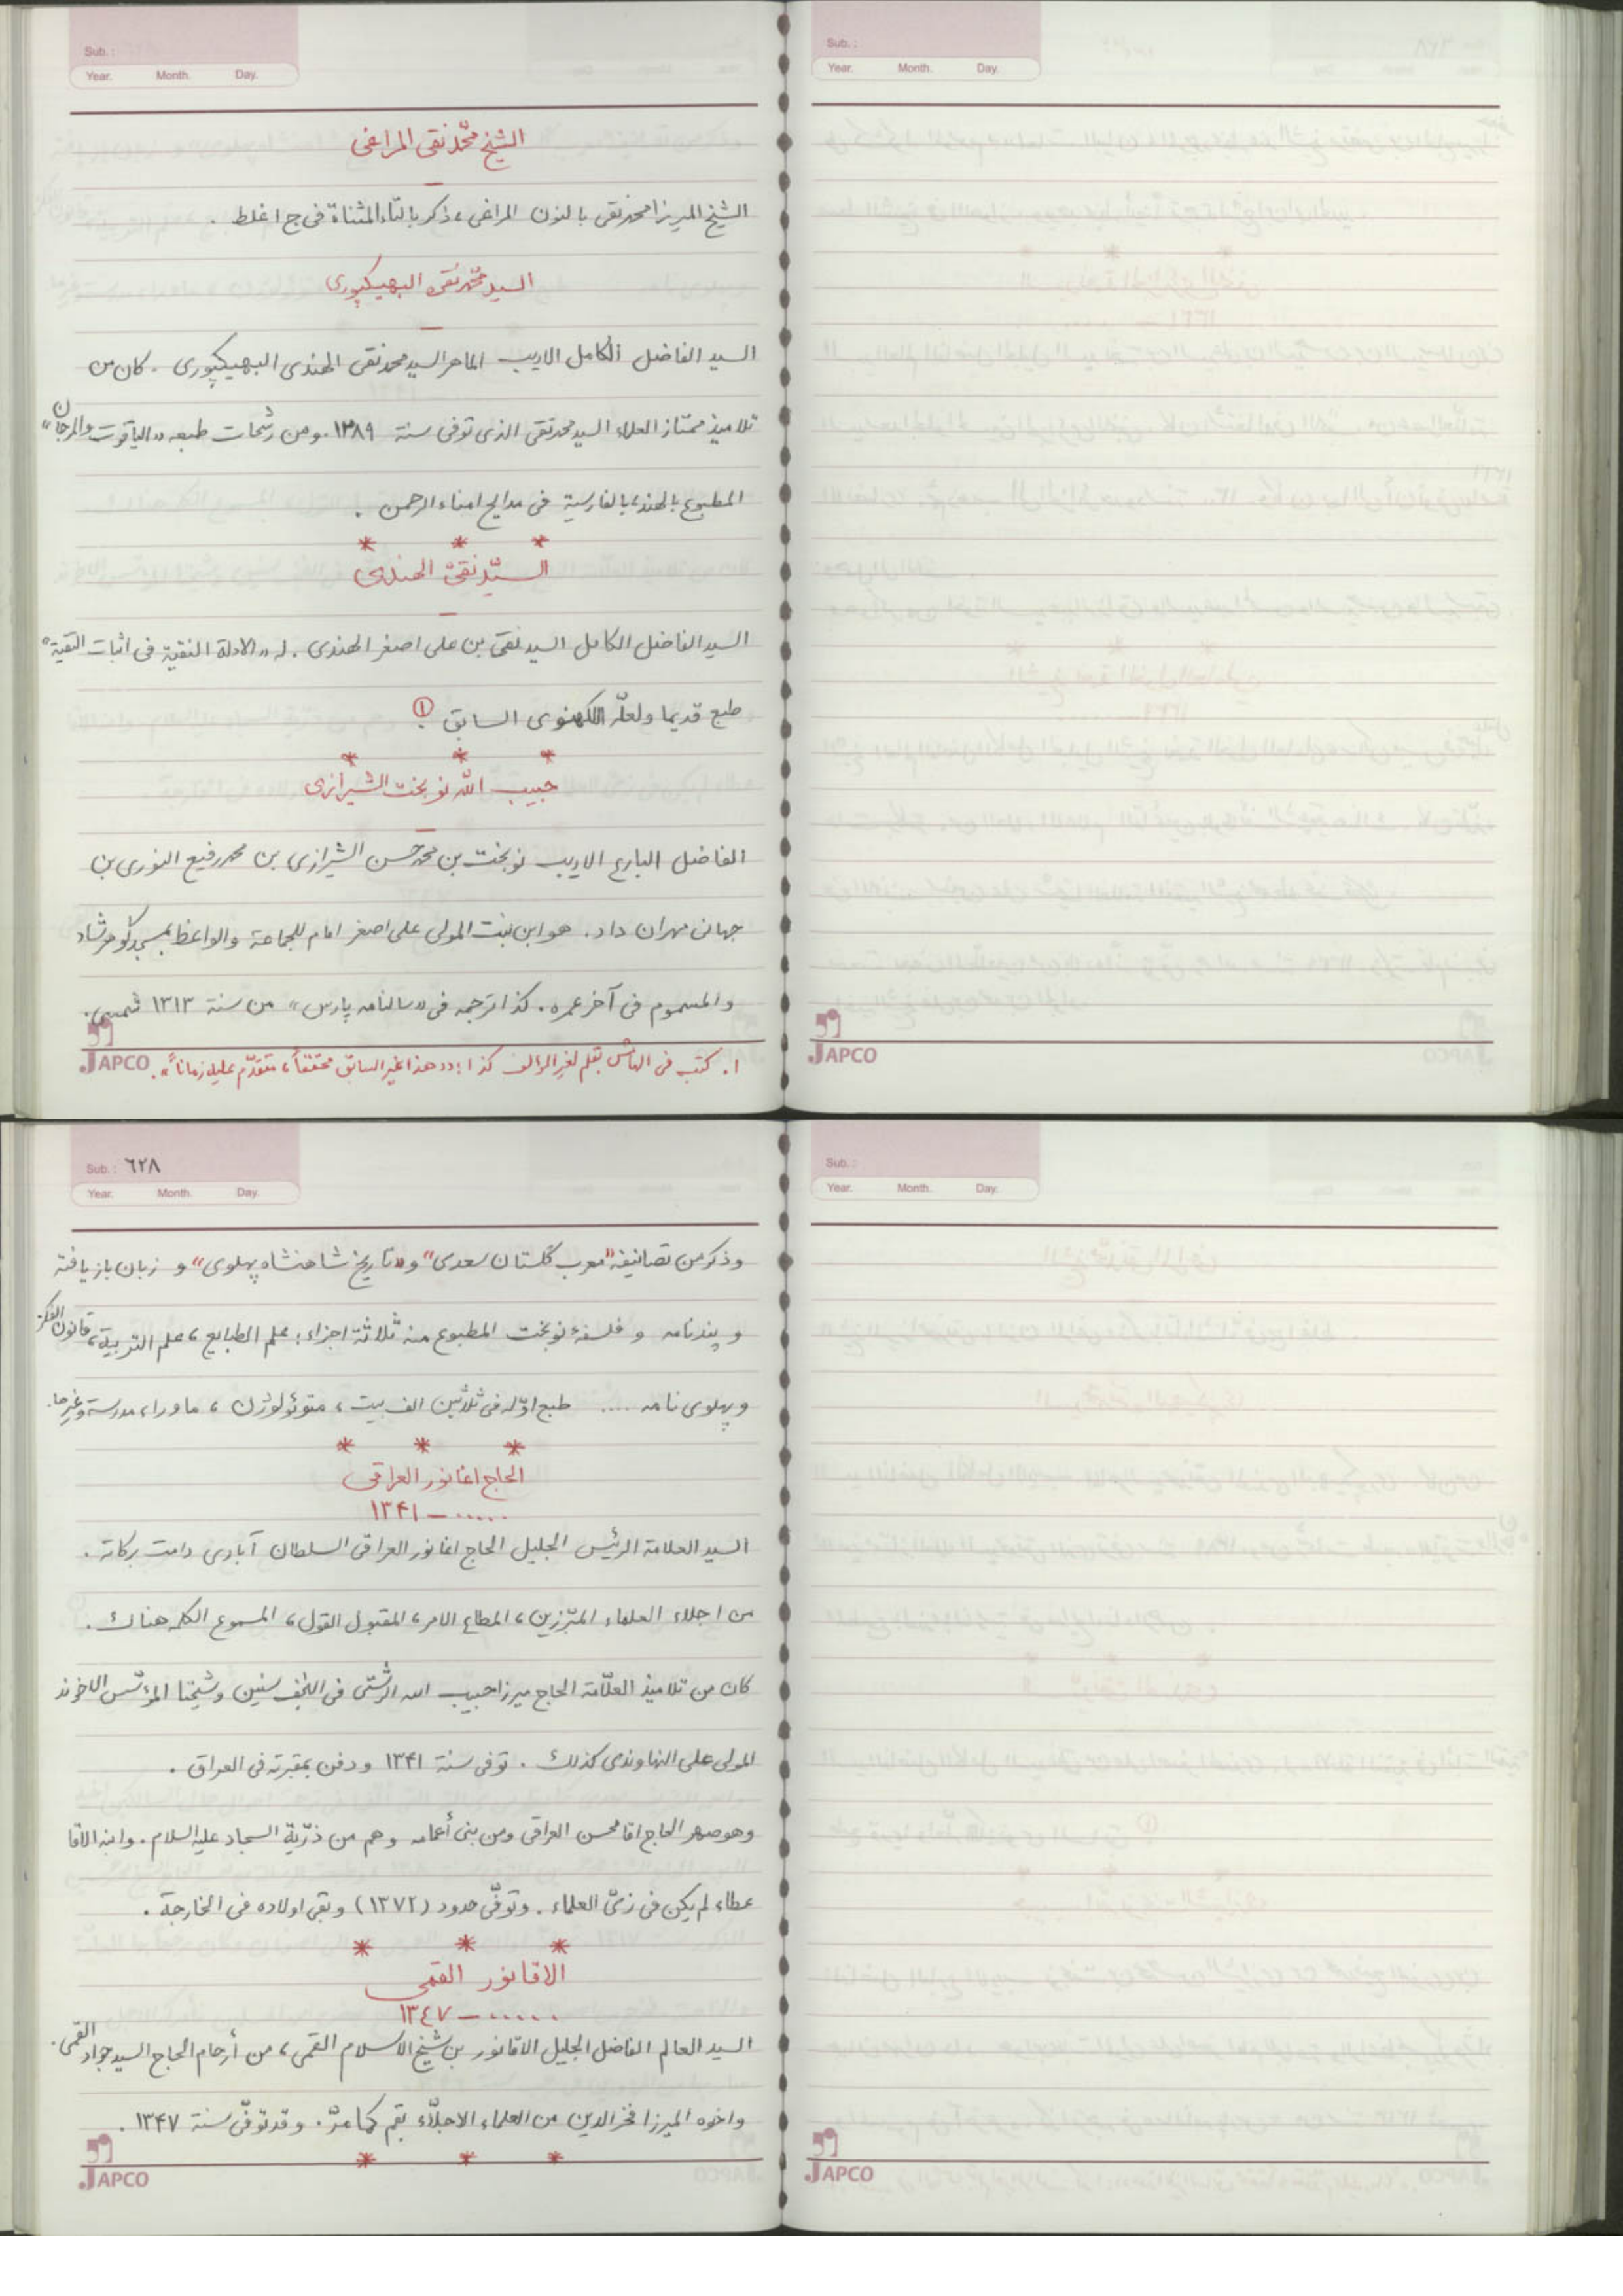 Sub. :
Year. Month. Day.
الشيخ محمّد نقي المراغي
الشيخ الميرزا محمد نقي بالنون المراغي، ذكر بالتاء المثناة في ج ١ غلط .
السيد محمّد نقي البهيكپوری
السيد الفاضل الكامل الاديب الماهر السيد محمد نقي الهندی البهيكپوری . كان من
تلاميذ ممتاز العلماء السيد محمد تقی الذی توفی سنة ١٢٨٩. ومن رشحات طبعه «الياقوت والمرجان»
المطبوع بالهند، بالفارسية فی مدايح امناء الرحمن .
* * *
السيّد نقیّ الهندی
السيد الفاضل الكامل السيد نقی بن علی اصغر الهندی . له «الادلة النقية فی اثبات التقية»
طبع قديما ولعلّه اللكهنوی السابق ①.
* * *
حبيب الله نوبخت الشيرازی
الفاضل البارع الاديب نوبخت بن محمد حسن الشيرازی بن محمد رفيع النوری بن
جهان مهران داد. هو ابن بنت المولی علی اصغر امام للجماعة والواعظ بمسجد گوهرشاد
والمسموم فی آخر عمره. كذا ترجمه فی «سالنامه پارس» من سنة ١٣١٣ شمسی.
١. كتب فی الهامش بقلم لغير المؤلف كذا: «هذا غير السابق محققاً، متقدّم عليه زماناً».
JAPCO
Sub. :
Year. Month. Day.
JAPCO
Sub. : ٦٢٨
Year. Month. Day.
وذكر من تصانيفه "معرب گلستان سعدی" و«تاريخ شاهنشاه پهلوی» و زبان باز يافته
و پندنامه و فلسفۀ نوبخت المطبوع منه ثلاثة اجزاء: علم الطبايع، علم التربية، قانون الفكر
و پهلوی نامه ..... طبع اوّله فی ثلاثين الف بيت، متوئولوژن، ماوراء مدرسة وغيرها.
* * *
الحاج اغا نور العراقی
...... – ١٣٤١
السيد العلامة الرئيس الجليل الحاج اغا نور العراقی السلطان آبادی دامت بركاته .
من اجلاء العلماء المبّرزين، المطاع الامر، المقبول القول، المسموع الكلمه هناك .
كان من تلاميذ العلّامة الحاج ميرزا حبيب الله الرشتی فی النجف سنين وشيخنا المؤسّس الاخوند
المولی علی النهاوندی كذلك . توفی سنة ١٣٤١ ودفن بمقبرته فی العراق .
وهو صهر الحاج اقا محسن العراقی ومن بنی أعمامه وهم من ذرّية السجاد عليه السلام. وابنه الاقا
عطاء لم يكن فی زیّ العلماء . وتوفّی حدود (١٣٧٢) وبقی اولاده فی الخارجة .
* * *
الاقا نور القمی
...... – ١٣٤٧
السيد العالم الفاضل الجليل الاقا نور بن شيخ الاسلام القمی، من أرحام الحاج السيد جواد القمی.
واخوه الميرزا فخر الدين من العلماء الاجلّاء بقم كما مرّ. وقد توفّی سنة ١٣٤٧ .
* * *
JAPCO
Sub. :
Year. Month. Day.
JAPCO